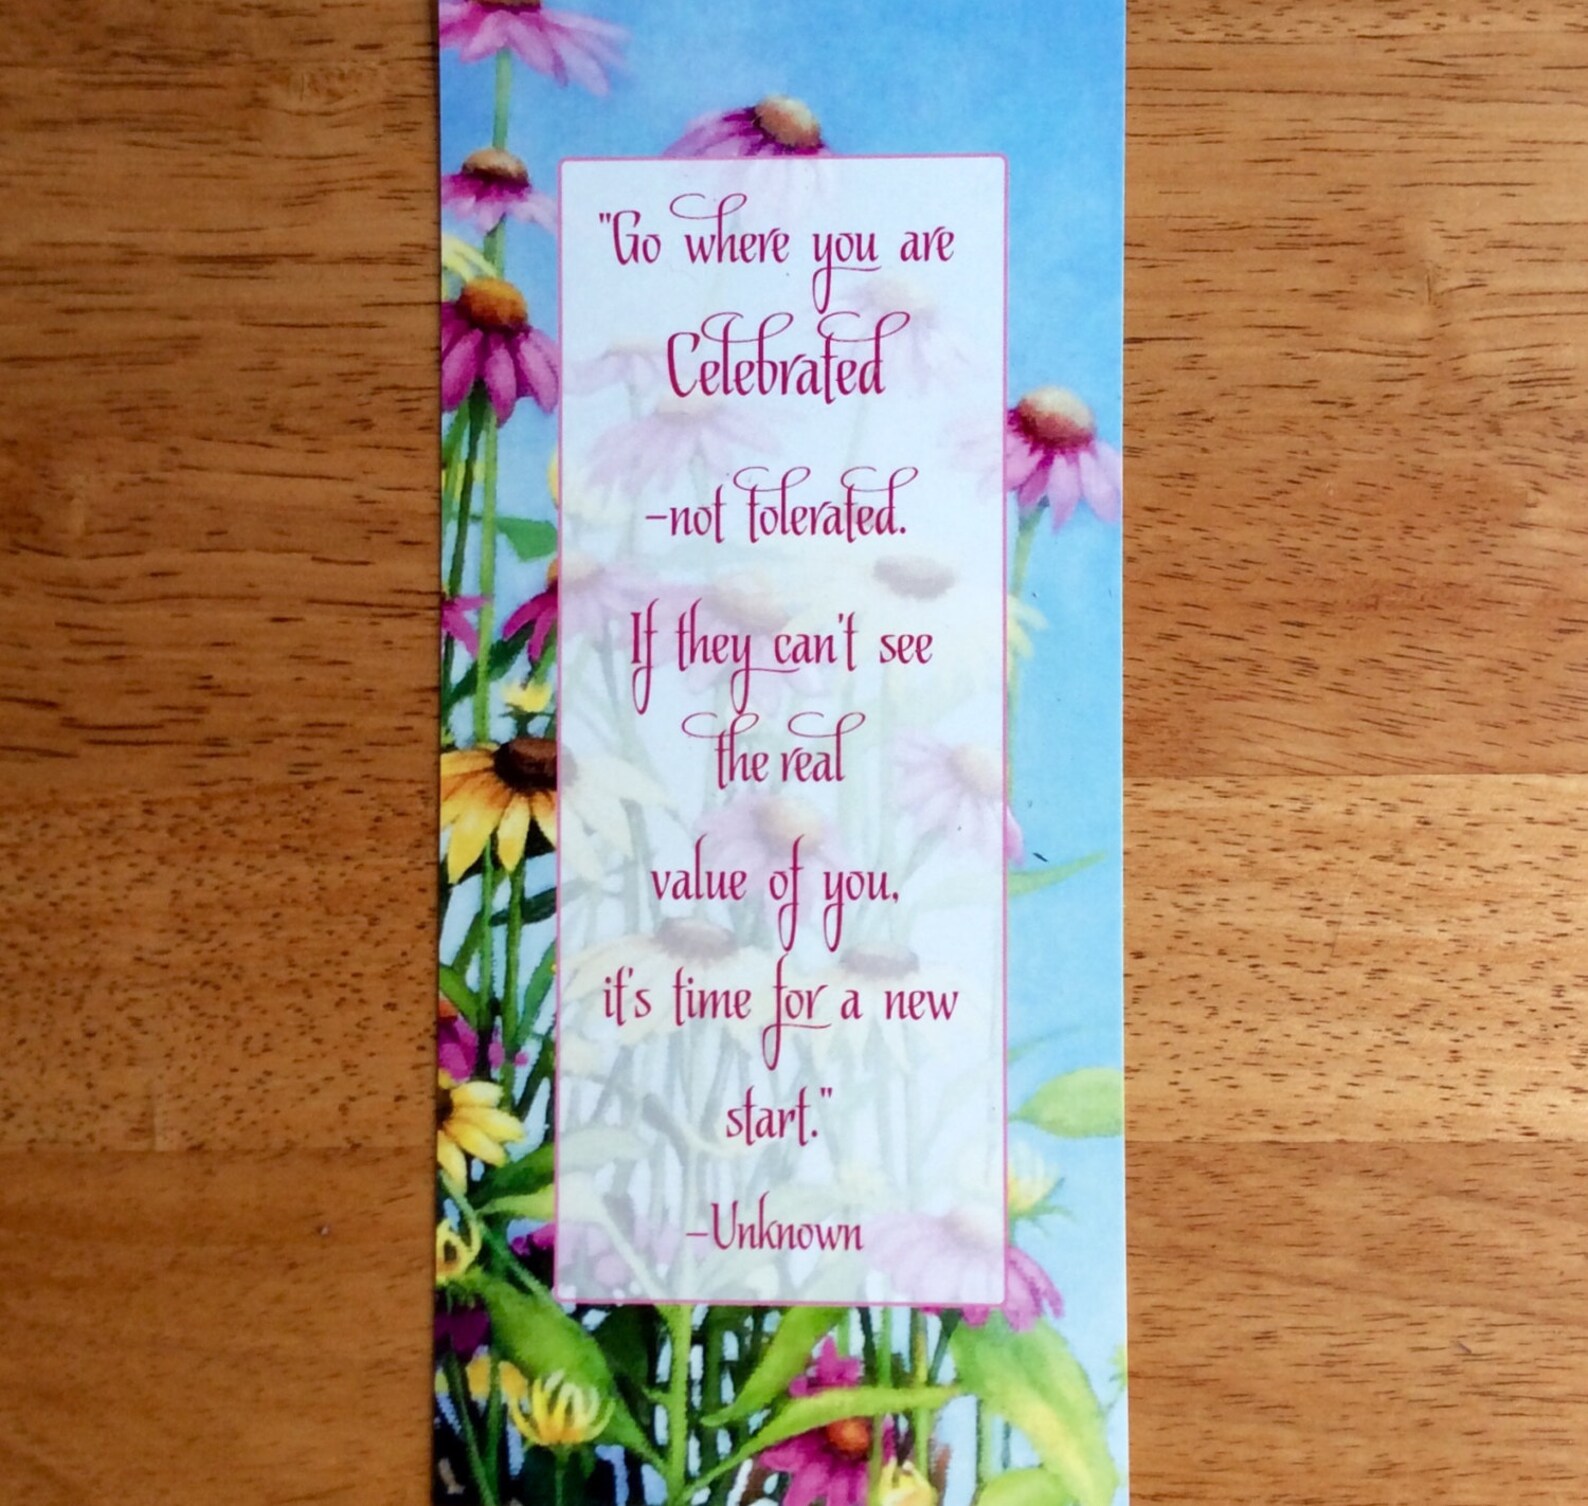 "Go where you are
Celebrated
-not tolerated.
If they can't see
the real
value of you,
it's time for a new
start."
-Unknown